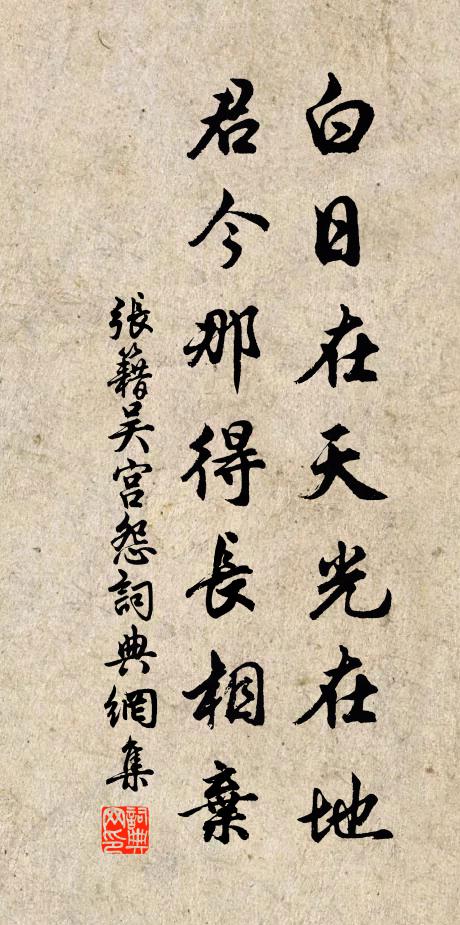 白日在天光在地
君今那得長相棄
張籍吳宮怨詞典網集
詞典
网印